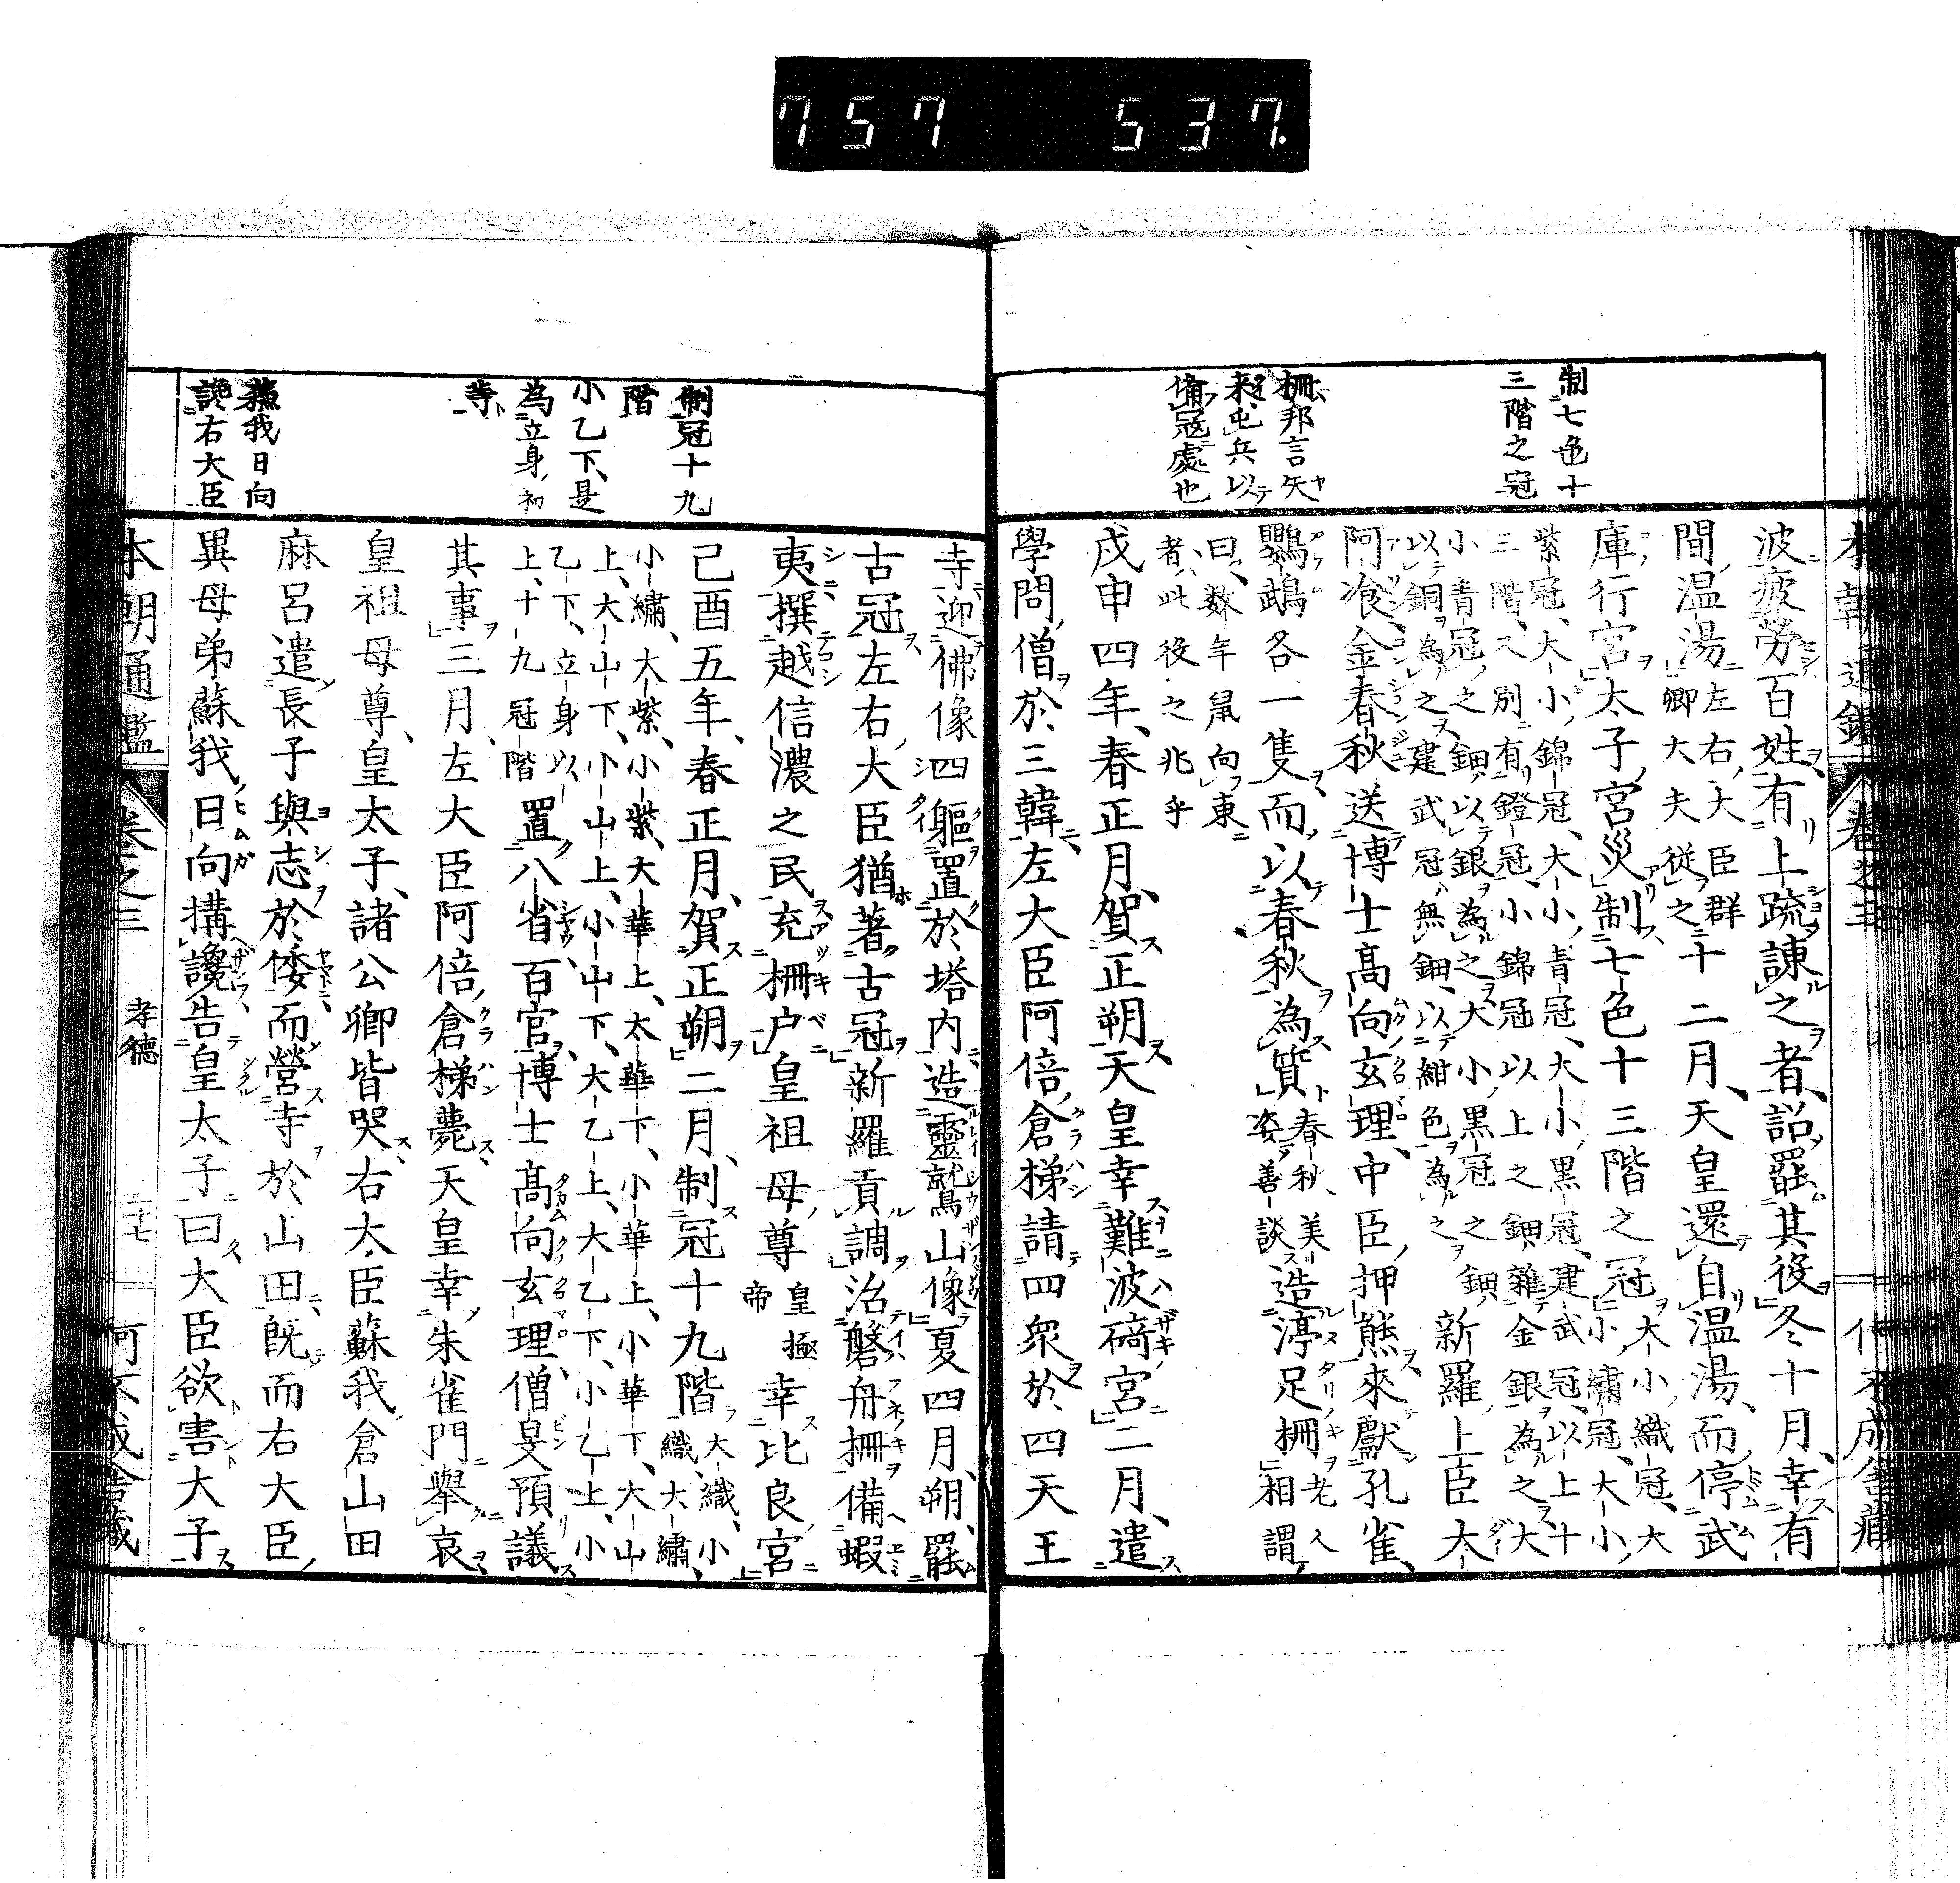 757 537.
制七色十
三階之冠
柵邦言矢
來、屯兵以
備寇處也
波疲勞百姓有上疏諫之者、詔罷其役冬十月、幸有
間温湯左右大臣群
卿大夫從之十二月、天皇還自温湯、而停武
庫行宮太子宮災制七色十三階之冠大小織冠、大
小繡冠、大小
紫冠、大小錦冠、大小青冠、大小黒冠、建武冠、以上十
三階、又別有鐙冠、小錦冠以上之鈿雜金銀為之大
小青冠之鈿以銀為之大小黒冠之鈿
以銅為之建武冠無鈿以紺色為之新羅上臣大
阿飡金春秋送博士髙向玄理、中臣押熊來獻孔雀、
鸚鵡各一隻而以春秋為質春秋、美
姿善談造渟足柵老人
相謂
曰、數年鼠向東
者、此役之兆乎
戊申四年、春正月、賀正朔天皇幸難波碕宮二月、遣
學問僧於三韓左大臣阿倍倉梯請四衆於四天王
制冠十九
階
小乙下、是
為立身、初
等
蘇我日向
讒右大臣
寺迎佛像四軀置於塔内造靈鷲山像夏四月、朔、罷
古冠左右大臣猶著古冠新羅貢調治磐舟柵備蝦
夷撰越信濃之民充柵戸皇祖母尊皇極
帝幸比良宮
己酉五年、春正月、賀正朔二月、制冠十九階大織、小
織、大繡、
小繡、大紫、小紫、大華上、大華下、小華上、小華下、大山
上、大山下、小山上、小山下、大乙上、大乙下、小乙上、小
乙下、立身以
上、十九冠階置八省百官博士髙向玄理僧旻預議
其事三月、左大臣阿倍倉梯薨天皇幸朱雀門舉哀
皇祖母尊、皇太子、諸公卿皆哭右大臣蘇我倉山田
麻呂遣長子與志於倭而營寺於山田既而右大臣
異母弟蘇我日向搆讒告皇太子曰大臣欲害大子
本朝通鑑 卷之三 孝德 三十七